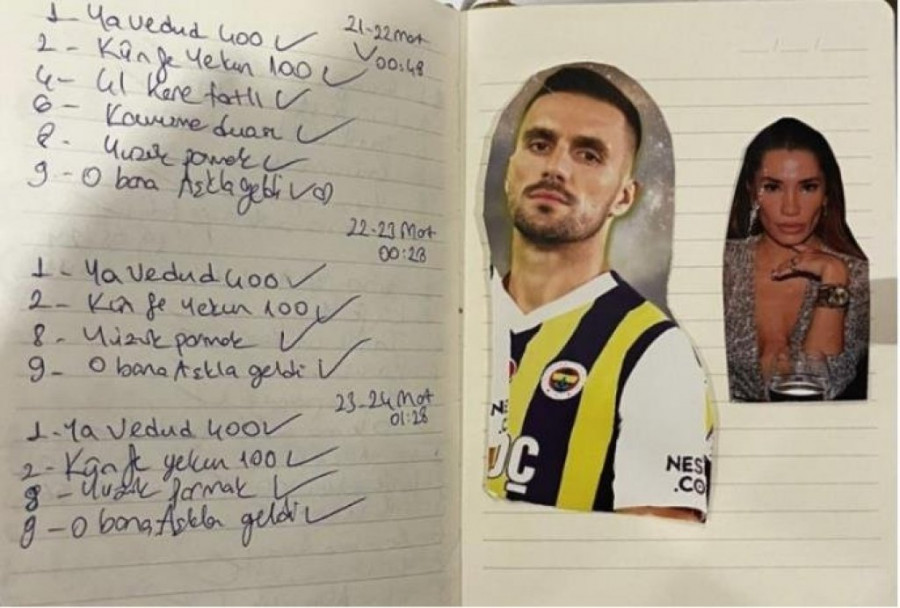 1- Ya Vedud 400 ✓
21-22 Mart
✓ 00:48
2- Kûn fe Yekun 100 ✓
4- 41 Kere fatlı ✓
6- Kavusme duası ✓
8- Yüzük parmak ✓
9- O bana Aşkla geldi ✓
22-23 Mart
00:23
1- Ya Vedud 400 ✓
2- Kûn fe Yekun 100 ✓
8- Yüzük parmak ✓
9- O bana Aşkla geldi ✓
23-24 Mart
01:28
1-Ya Vedud 400 ✓
2- Kûn fe yekun 100 ✓
8- Yüzük parmak ✓
9- O bana Aşkla geldi ✓
NE
.C
OÇ
NES
.CO